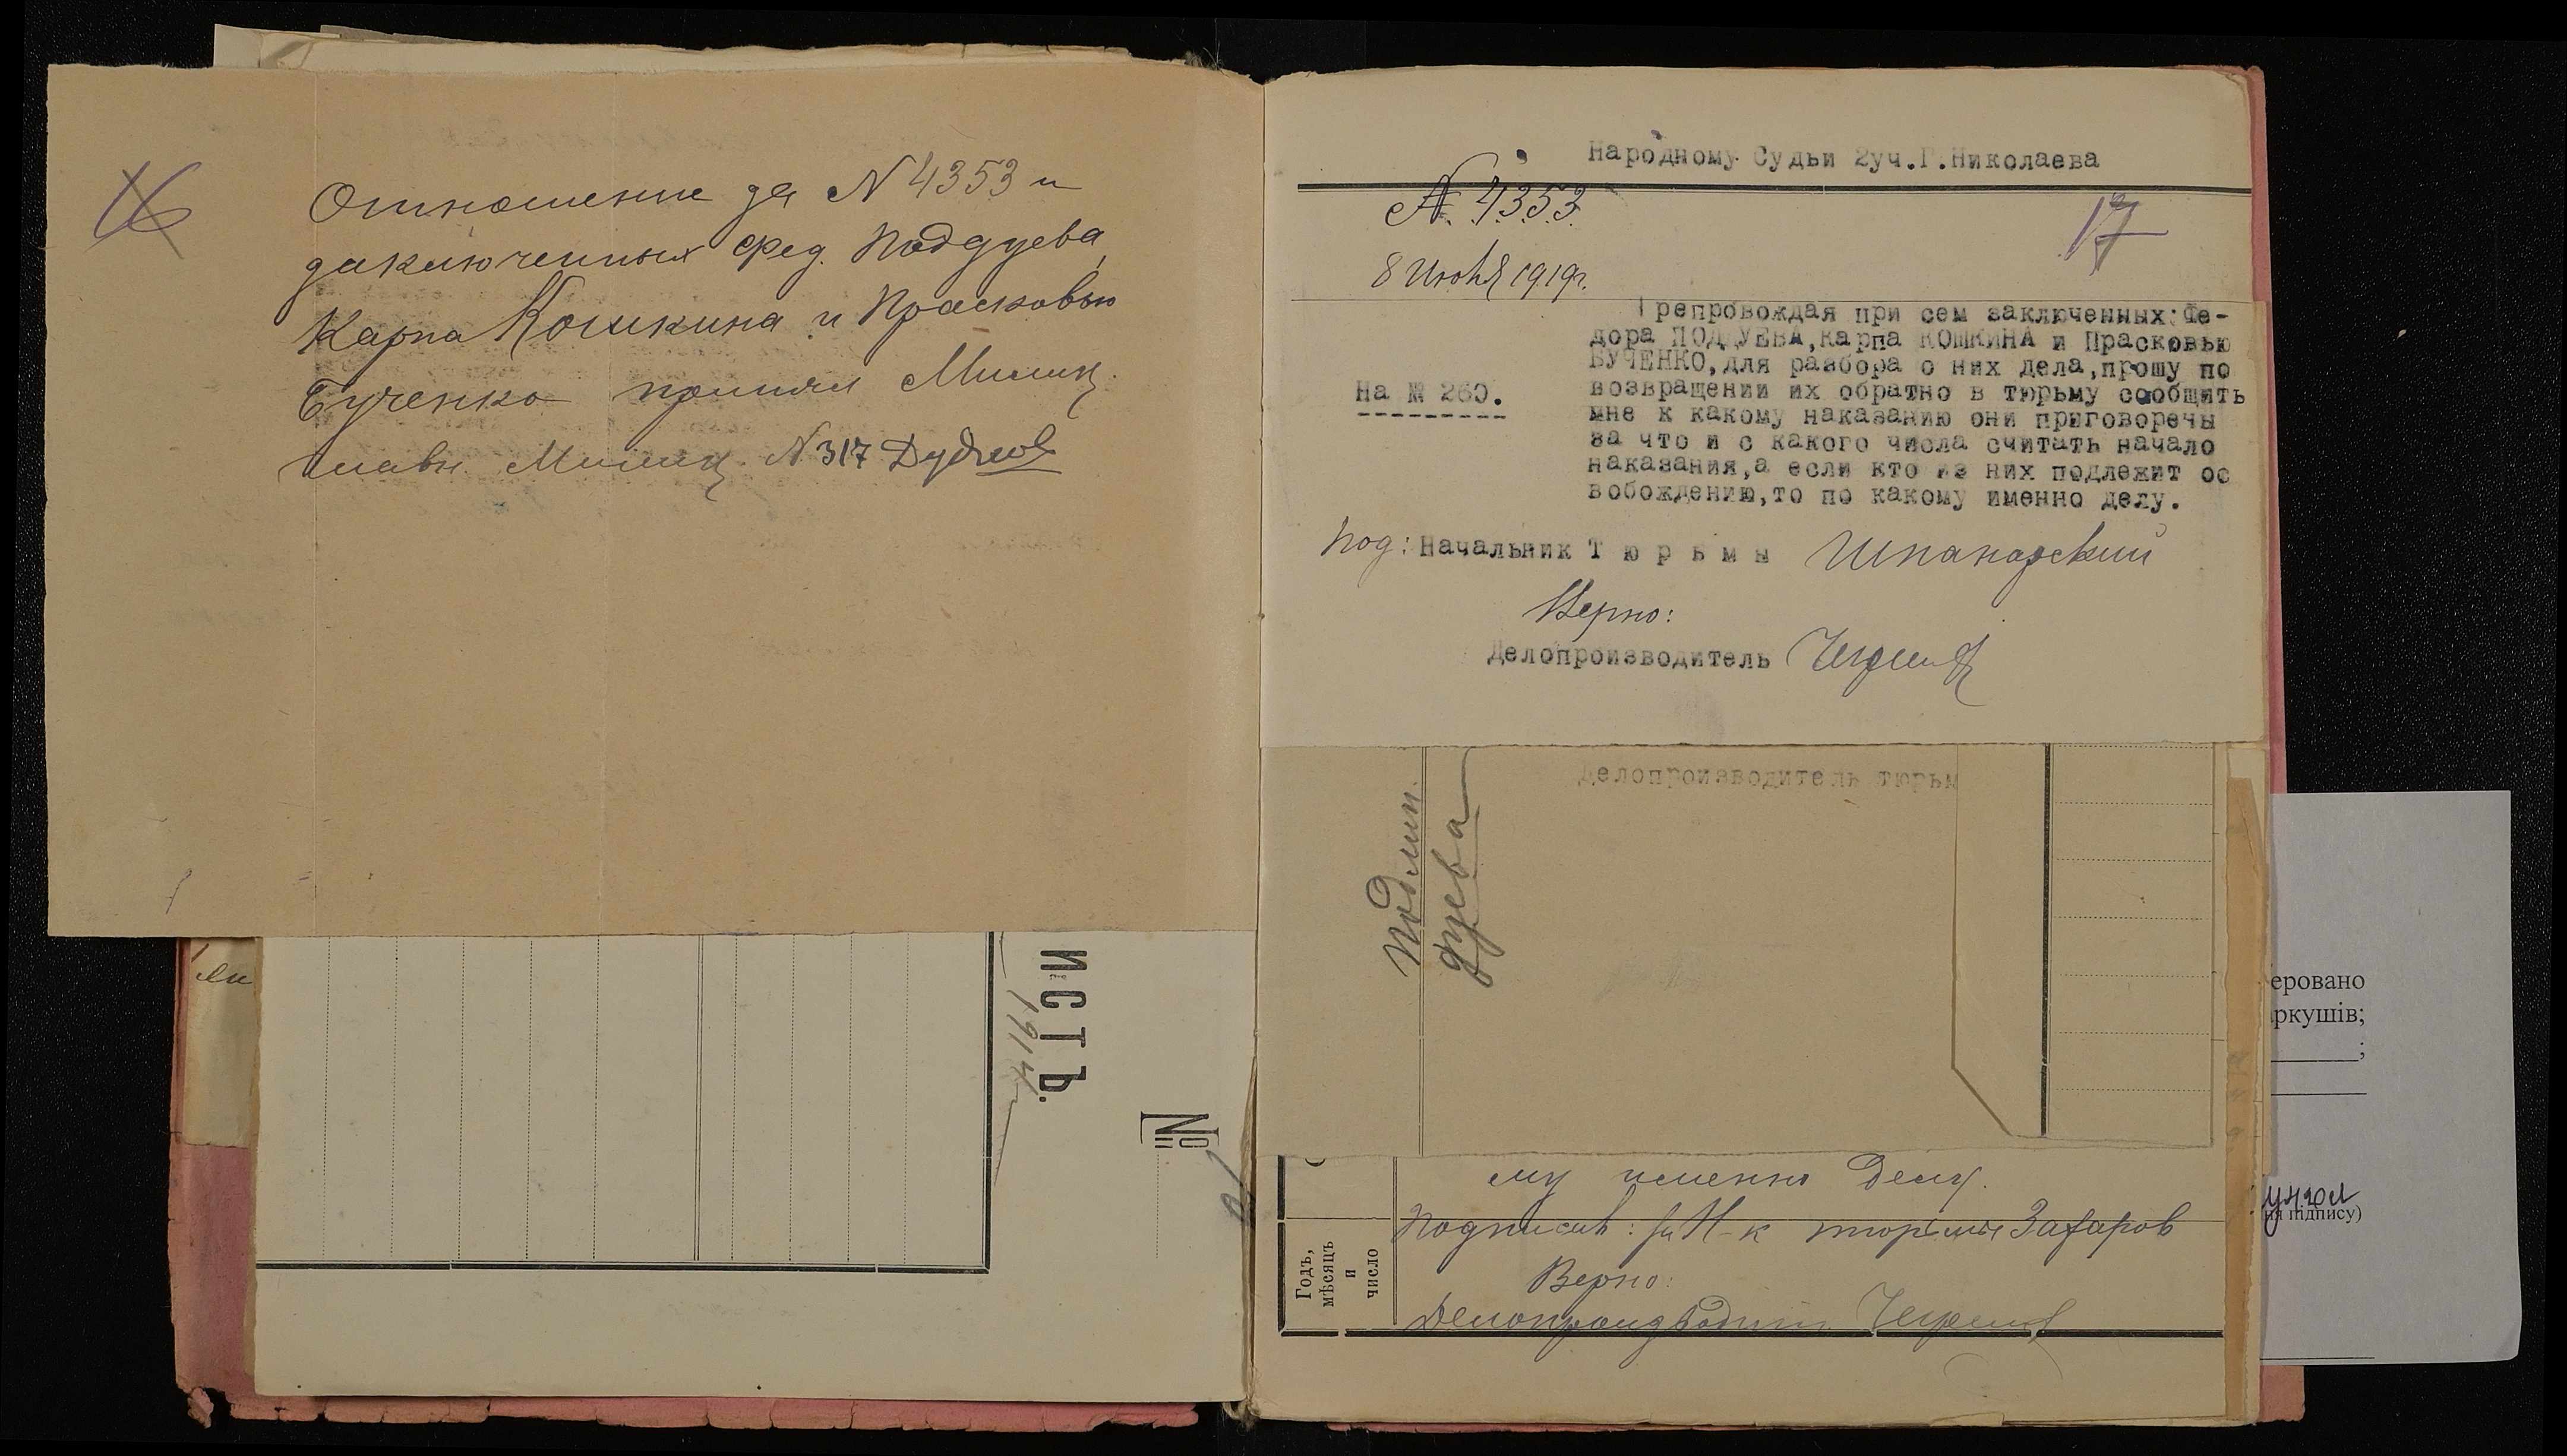 16
Отношение за N 4353 и
заключенных Фед. Поддуева,
Карпа Кошкина и Прасковью
Бученко принял Милиц.
Милиц. N 317
ли
ИСТЪ.
1914
№
Народному Судьи 2уч.Г.Николаева
N. 4353.
17
8 Июня 1919г.
Препровождая при сем заключенных:Фе-
дора ПОДДУЕВА,Карпа КОШКИНА и Прасковью
БУЧЕНКО,для разбора о них дела,прошу по
На № 260.
возвращении их обратно в тюрьму сообщить
мне к какому наказанию они приговорены
за что и с какого числа считать начало
наказания,а если кто из них подлежит ос
вобождению,то по какому именно делу.
Под: Начальник Тюрьмы
Верно:
Делопроизводитель
Делопроизводитель тюрьм
Подлин.
дуева
му именно делу.
Подписал: Н-к тюрьмы Захаров
Верно:
Делопроизводит.
Годъ,
мѣсяцъ
и
число
еровано
ркушів;
;
ня підпису)